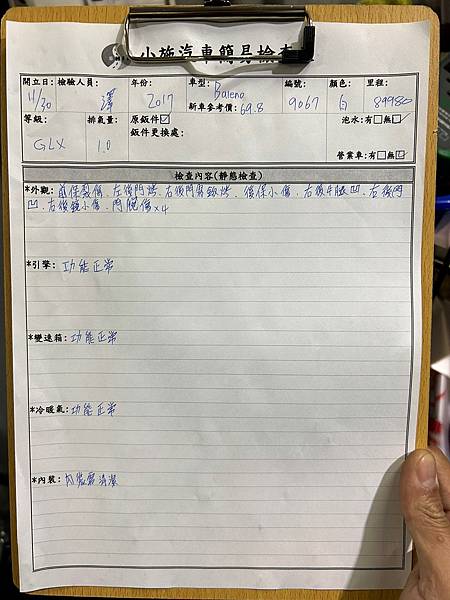 小施汽車簡易檢查
開立日: 檢驗人員: 年份: 車型: Baleno 編號: 顏色: 里程:
11/30 澤 2017 新車參考價: 69.8 9067 白 89980
等級: 排氣量: 原鈑件☑ 泡水:有□無☑
GLX 1.0 鈑件更換處:
營業車:有□無☑
檢查內容(靜態檢查)
*外觀: 前保裂傷、左後門 、右後門 、後保小傷、右後 凹、右後門
凹、右後鏡小傷、門腕傷x4
*引擎: 功能正常
*變速箱: 功能正常
*冷暖氣: 功能正常
*內裝: 內裝需清潔